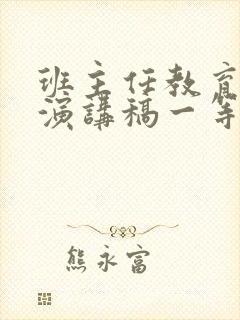 班主任教育
演講稿一等
熊永富